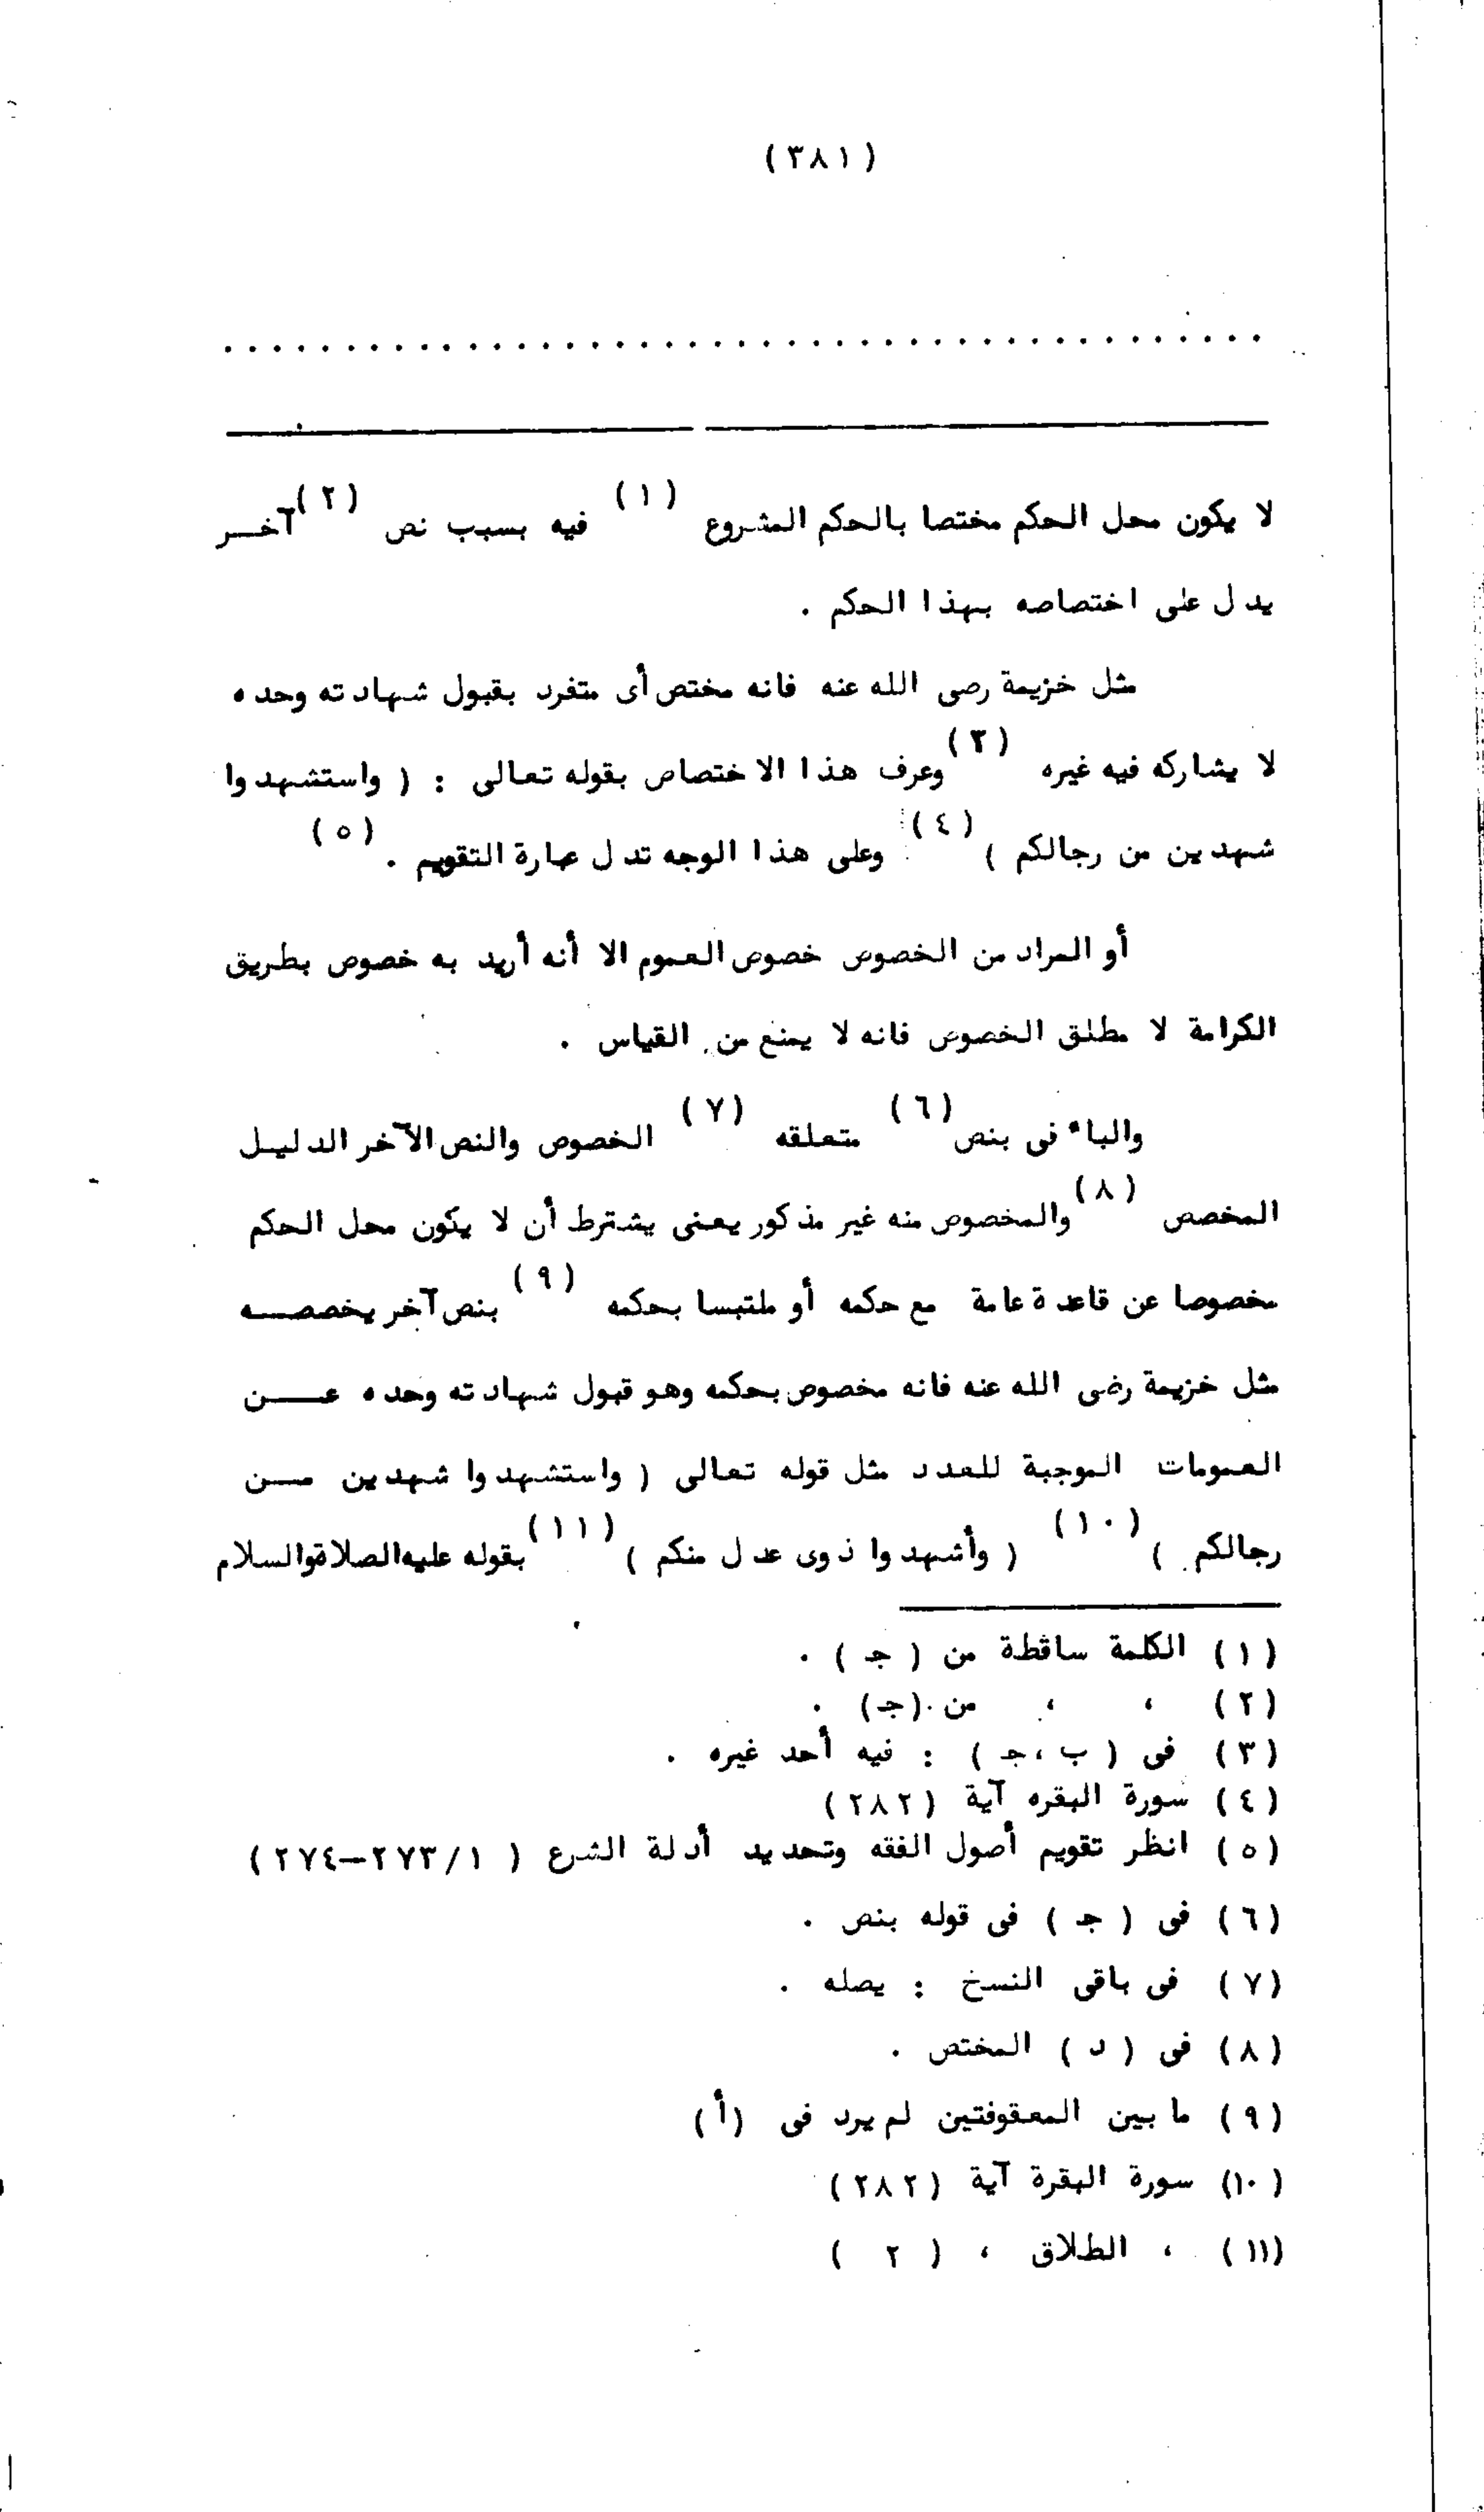 ( ٣٨١ )
. . . . . . . . . . . . . . . . . . . . . . . . . . . . . . . . . . . . . . . . . . .
لا يكون محل الحكم مختصا بالحكم المشروع (١) فيه بسبب نص (٢) آخـــر
يدل على اختصاصه بهذا الحكم .
مثل خزيمة رصى الله عنه فانه مختص أى متفرد بقبول شهادته وحده
لا يشاركه فيه غيره (٣) وعرف هذا الاختصاص بقوله تعالى : ( واستشهدوا
شهدين من رجالكم ) (٤) وعلى هذا الوجه تدل عبارة التقويم . (٥)
أو المراد من الخصوص خصوص العموم الا أنه أريد به خصوص بطريق
الكرامة لا مطلق الخصوص فانه لا يمنع من القياس .
والباء فى بنص (٦) متعلقه (٧) الخصوص والنص الآخر الدليـل
المخصص (٨) والمخصوص منه غير مذكور يعنى يشترط أن لا يكون محل الحكم
مخصوصا عن قاعدة عامة مع حكمه أو ملتبسا بحكمه (٩) بنص آخر يخصصـــه
مثل خزيمة رضى الله عنه فانه مخصوص بحكمه وهو قبول شهادته وحده عـــن
العمومات الموجبة للعدد مثل قوله تعالى ( واستشهدوا شهدين مــن
رجالكم ) (١٠) ( وأشهدوا ذوى عدل منكم ) (١١) بقوله عليه الصلاة والسلام
(١) الكلمة ساقطة من ( جـ ) .
(٢) ، ، من (جـ) .
(٣) فى ( ب ، جـ ) : فيه أحد غيره .
(٤) سورة البقره آية (٢٨٢)
(٥) انظر تقويم أصول الفقه وتحديد أدلة الشرع ( ٢٧٣/١–٢٧٤)
(٦) فى ( جـ ) فى قوله بنص .
(٧) فى باقى النسخ : يصله .
(٨) فى ( د ) المختص .
(٩) ما بين المعقوفتين لم يرد فى (أ)
(١٠) سورة البقرة آية (٢٨٢)
(١١) ، الطلاق ، ( ٢ )